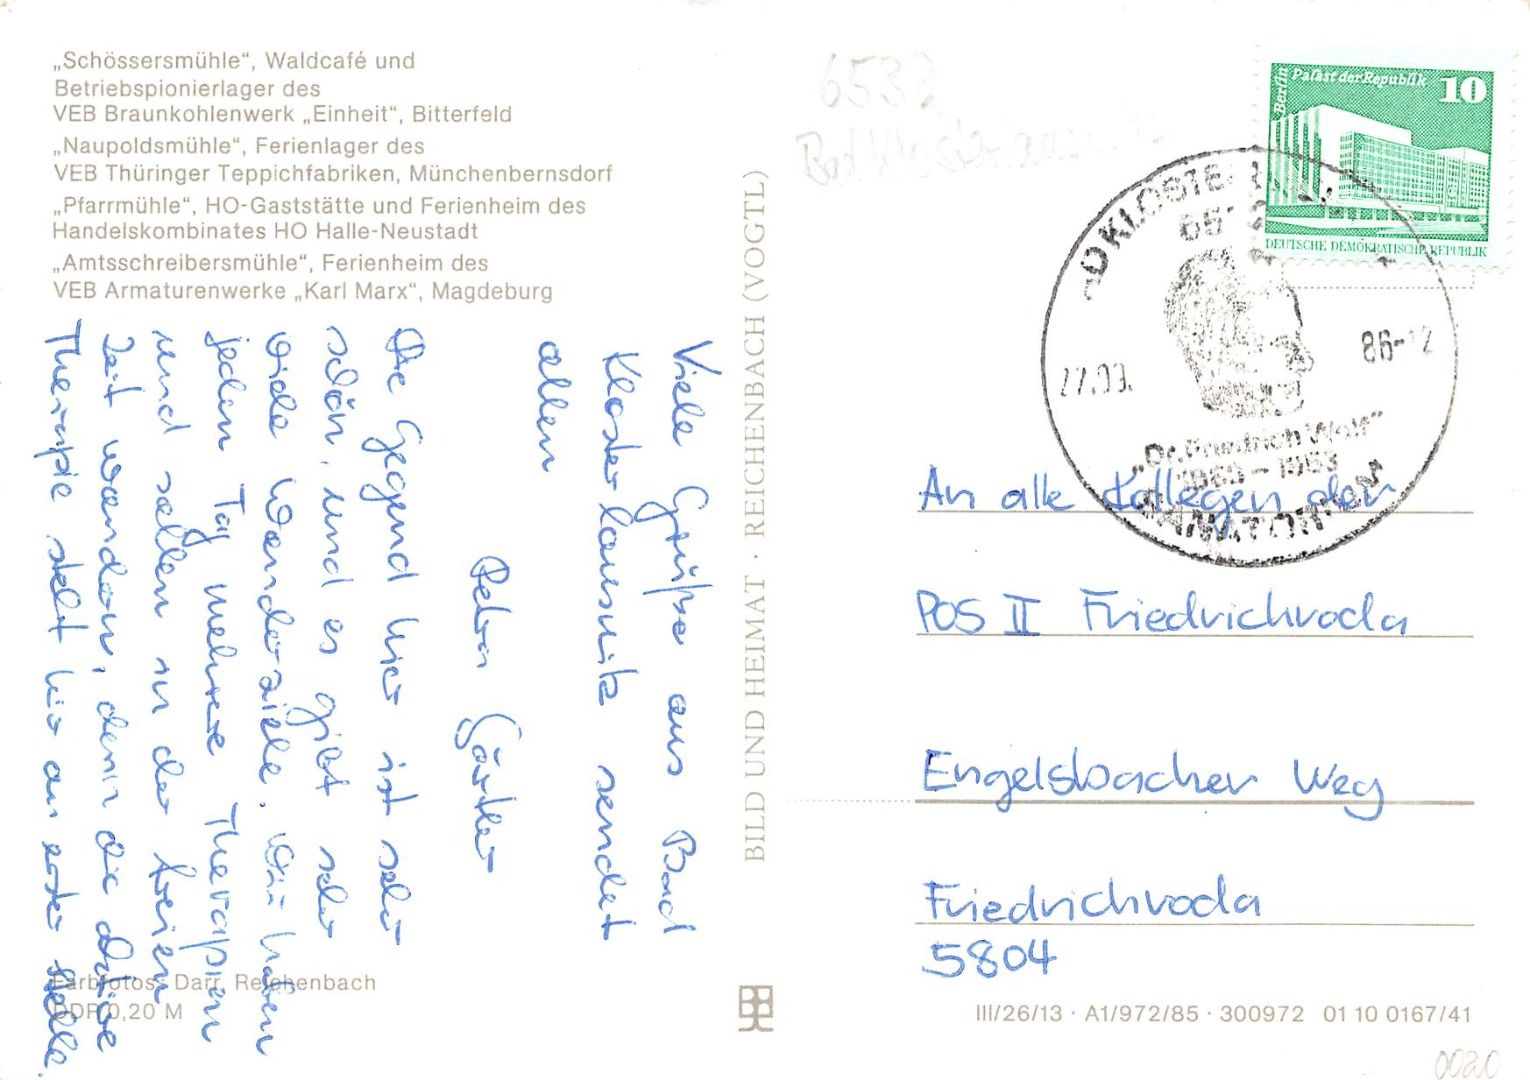 „Schössersmühle“, Waldcafé und
Betriebspionierlager des
VEB Braunkohlenwerk „Einheit“, Bitterfeld
„Naupoldsmühle“, Ferienlager des
VEB Thüringer Teppichfabriken, Münchenbernsdorf
„Pfarrmühle“, HO-Gaststätte und Ferienheim des
Handelskombinates HO Halle-Neustadt
„Amtsschreibersmühle“, Ferienheim des
VEB Armaturenwerke „Karl Marx“, Magdeburg
Viele Grüße aus Bad
Klosterlausnitz sendet
allen
Petra Gärtner
Die Gegend hier ist sehr
schön, und es gibt sehr
viele Wanderziele. Wir haben
jeden Tag mehrere Therapien
und sollen in der freien
Zeit wandern, denn die aktive
Therapie steht hier an erster Stelle.
Farbfotos: Darr, Reichenbach
DDR 0,20 M
BILD UND HEIMAT · REICHENBACH (VOGTL)
6532
Bad Klosterlausnitz
Berlin Palast der Republik 10
DEUTSCHE DEMOKRATISCHE REPUBLIK
27.03. 86-12
„Dr. Friedrich Wolf“
SANATORIUM
An alle Kollegen der
POS II Friedrichroda
Engelsbacher Weg
Friedrichroda
5804
III/26/13 · A1/972/85 · 300972 01 10 0167/41
0020